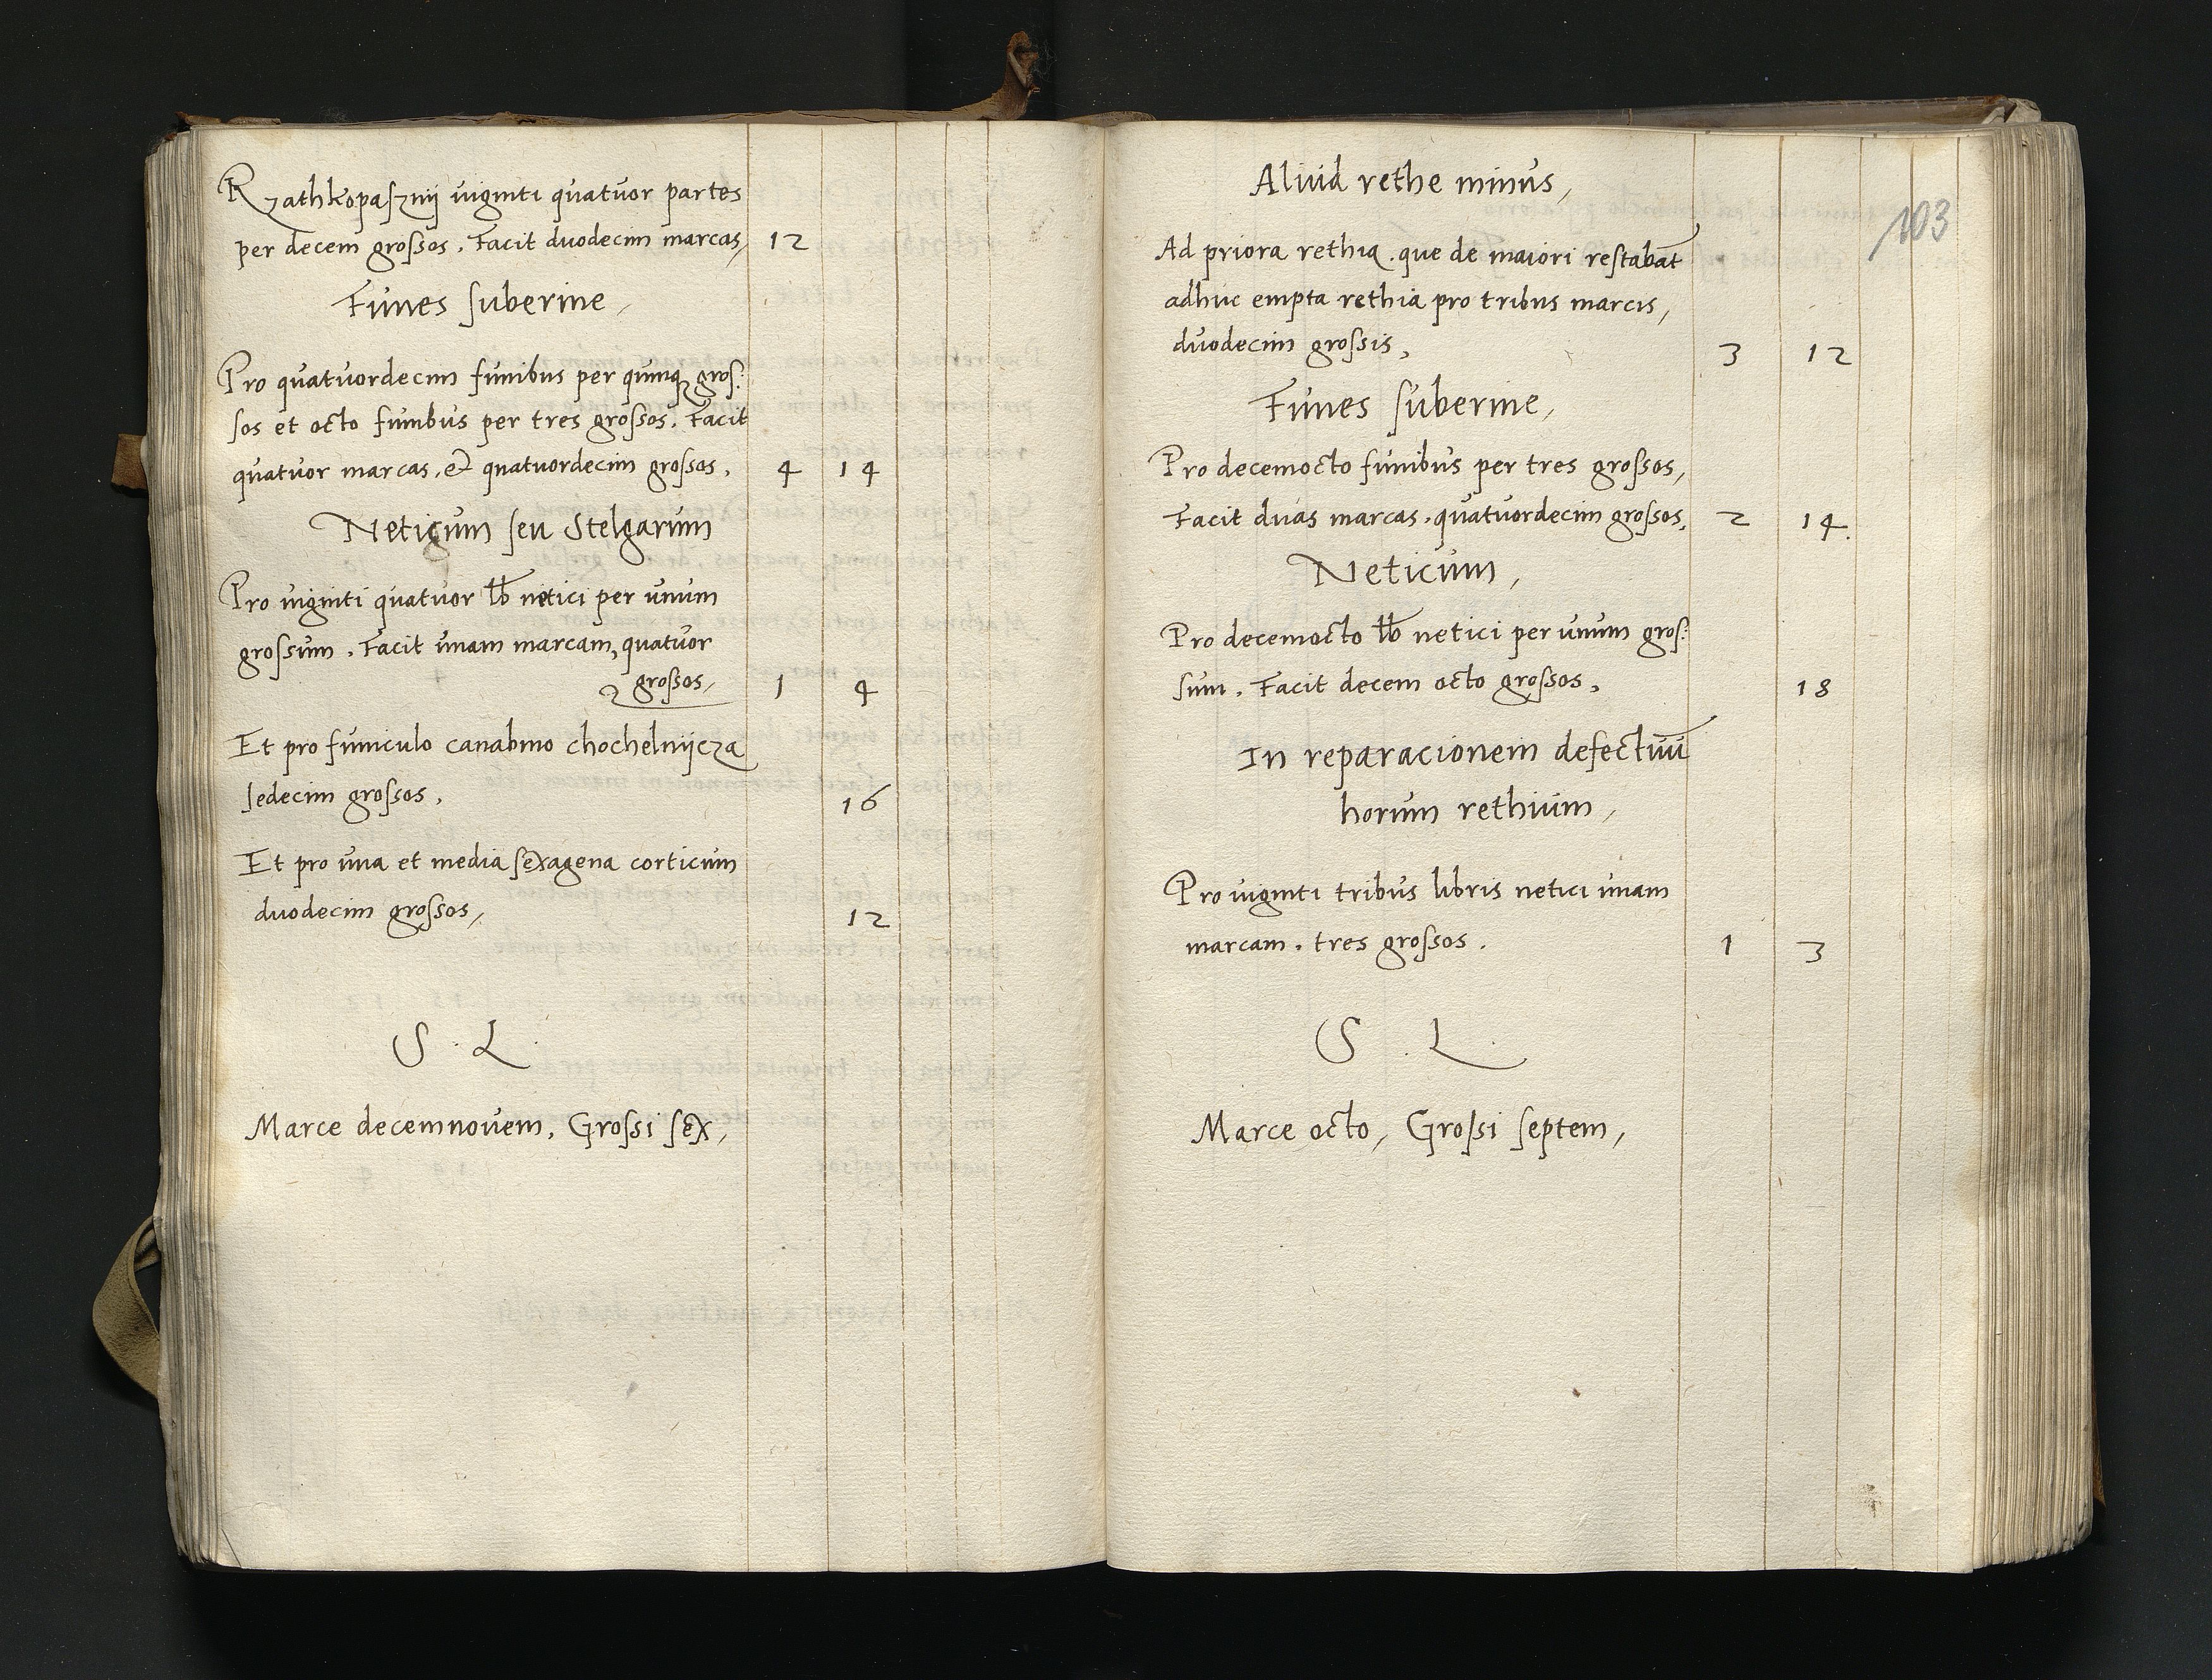 Rzathkopaſznij viginti quatuor partes
per decem groſsos. Facit duodecim marcas, 12
Funes ſuberine,
Pro quatuordecim funibus per quinq groſ:
ſos et octo funibus per tres groſsos. Facit
quatuor marcas, et quatuordecim groſsos. 4 14
Neticum ſeu Stelgarum
Pro viginti quatuor lb netici per unum
groſsum. Facit unam marcam, quatuor
groſsos, 1 4
Et pro funiculo canabino chochelnijcza
ſedecim groſsos. 16
Et pro una et media ſexagena corticum
duodecim groſsos, 12
S. L.
Marce decemnovem, Groſsi ſex,
103
Aliud rethe minus,
Ad priora rethia. que de maiori reſtabāt
adhuc empta rethia pro tribus marcis,
duodecim groſsis, 3 12
Funes ſuberine,
Pro decemocto funibus per tres groſsos,
Facit duas marcas. quatuordecim groſsos, 2 14.
Neticum,
Pro decemocto lb netici per unum groſ:
ſum. Facit decem octo groſsos, 18
In reparacionem defectuū
horum rethium,
Pro viginti tribus libris netici unam
marcam. tres groſsos. 1 3
S. L.
Marce octo, Groſsi ſeptem,